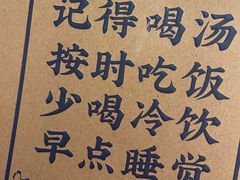 记得喝汤
按时吃饭
少喝冷饮
早点睡觉